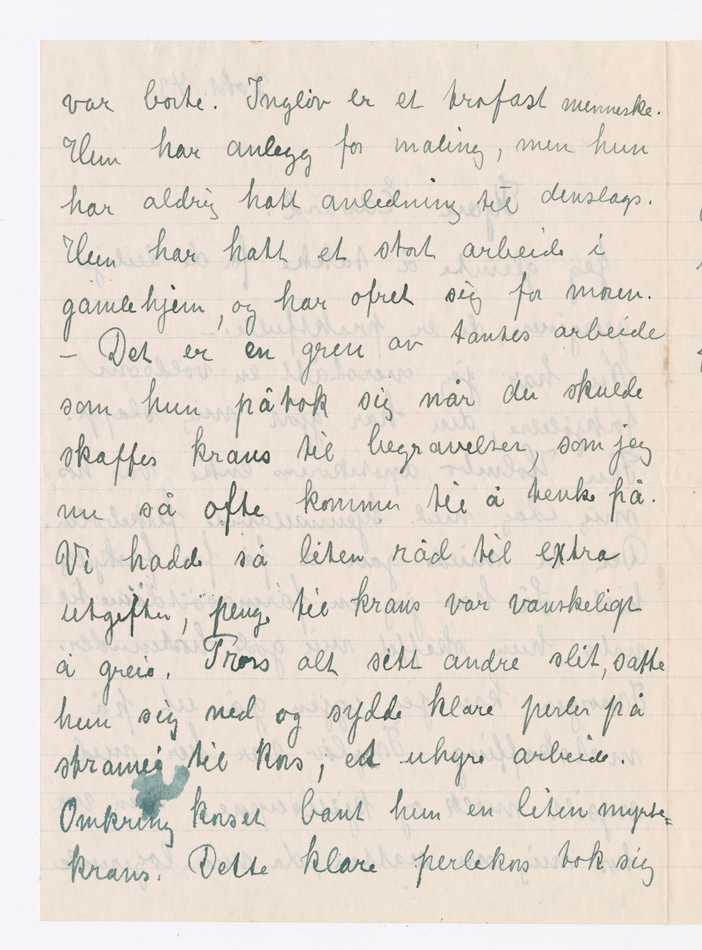 var borte. Ingløv er et trofast menneske.
Hun har anlegg for maling, men hun
har aldrig hatt anledning til denslags.
Hun har hatt et stort arbeide i
gamlehjem, og har ofret sig for moren.
– Det er en gren av tantes arbeide
som hun påtok sig når du skulde
skaffes krans til begravelser, som jeg
nu så ofte kommer til å tenke på.
Vi hadde så liten råd til extra
utgifter, penge til krans var vanskeligt
å greie. Tross alt sitt andre slit, satte
hun sig ned og sydde klare perler på
stramei til kors, et uhyre arbeide.
Omkring korset bant hun en liten myrte=
krans. Dette klare perlekors tok sig